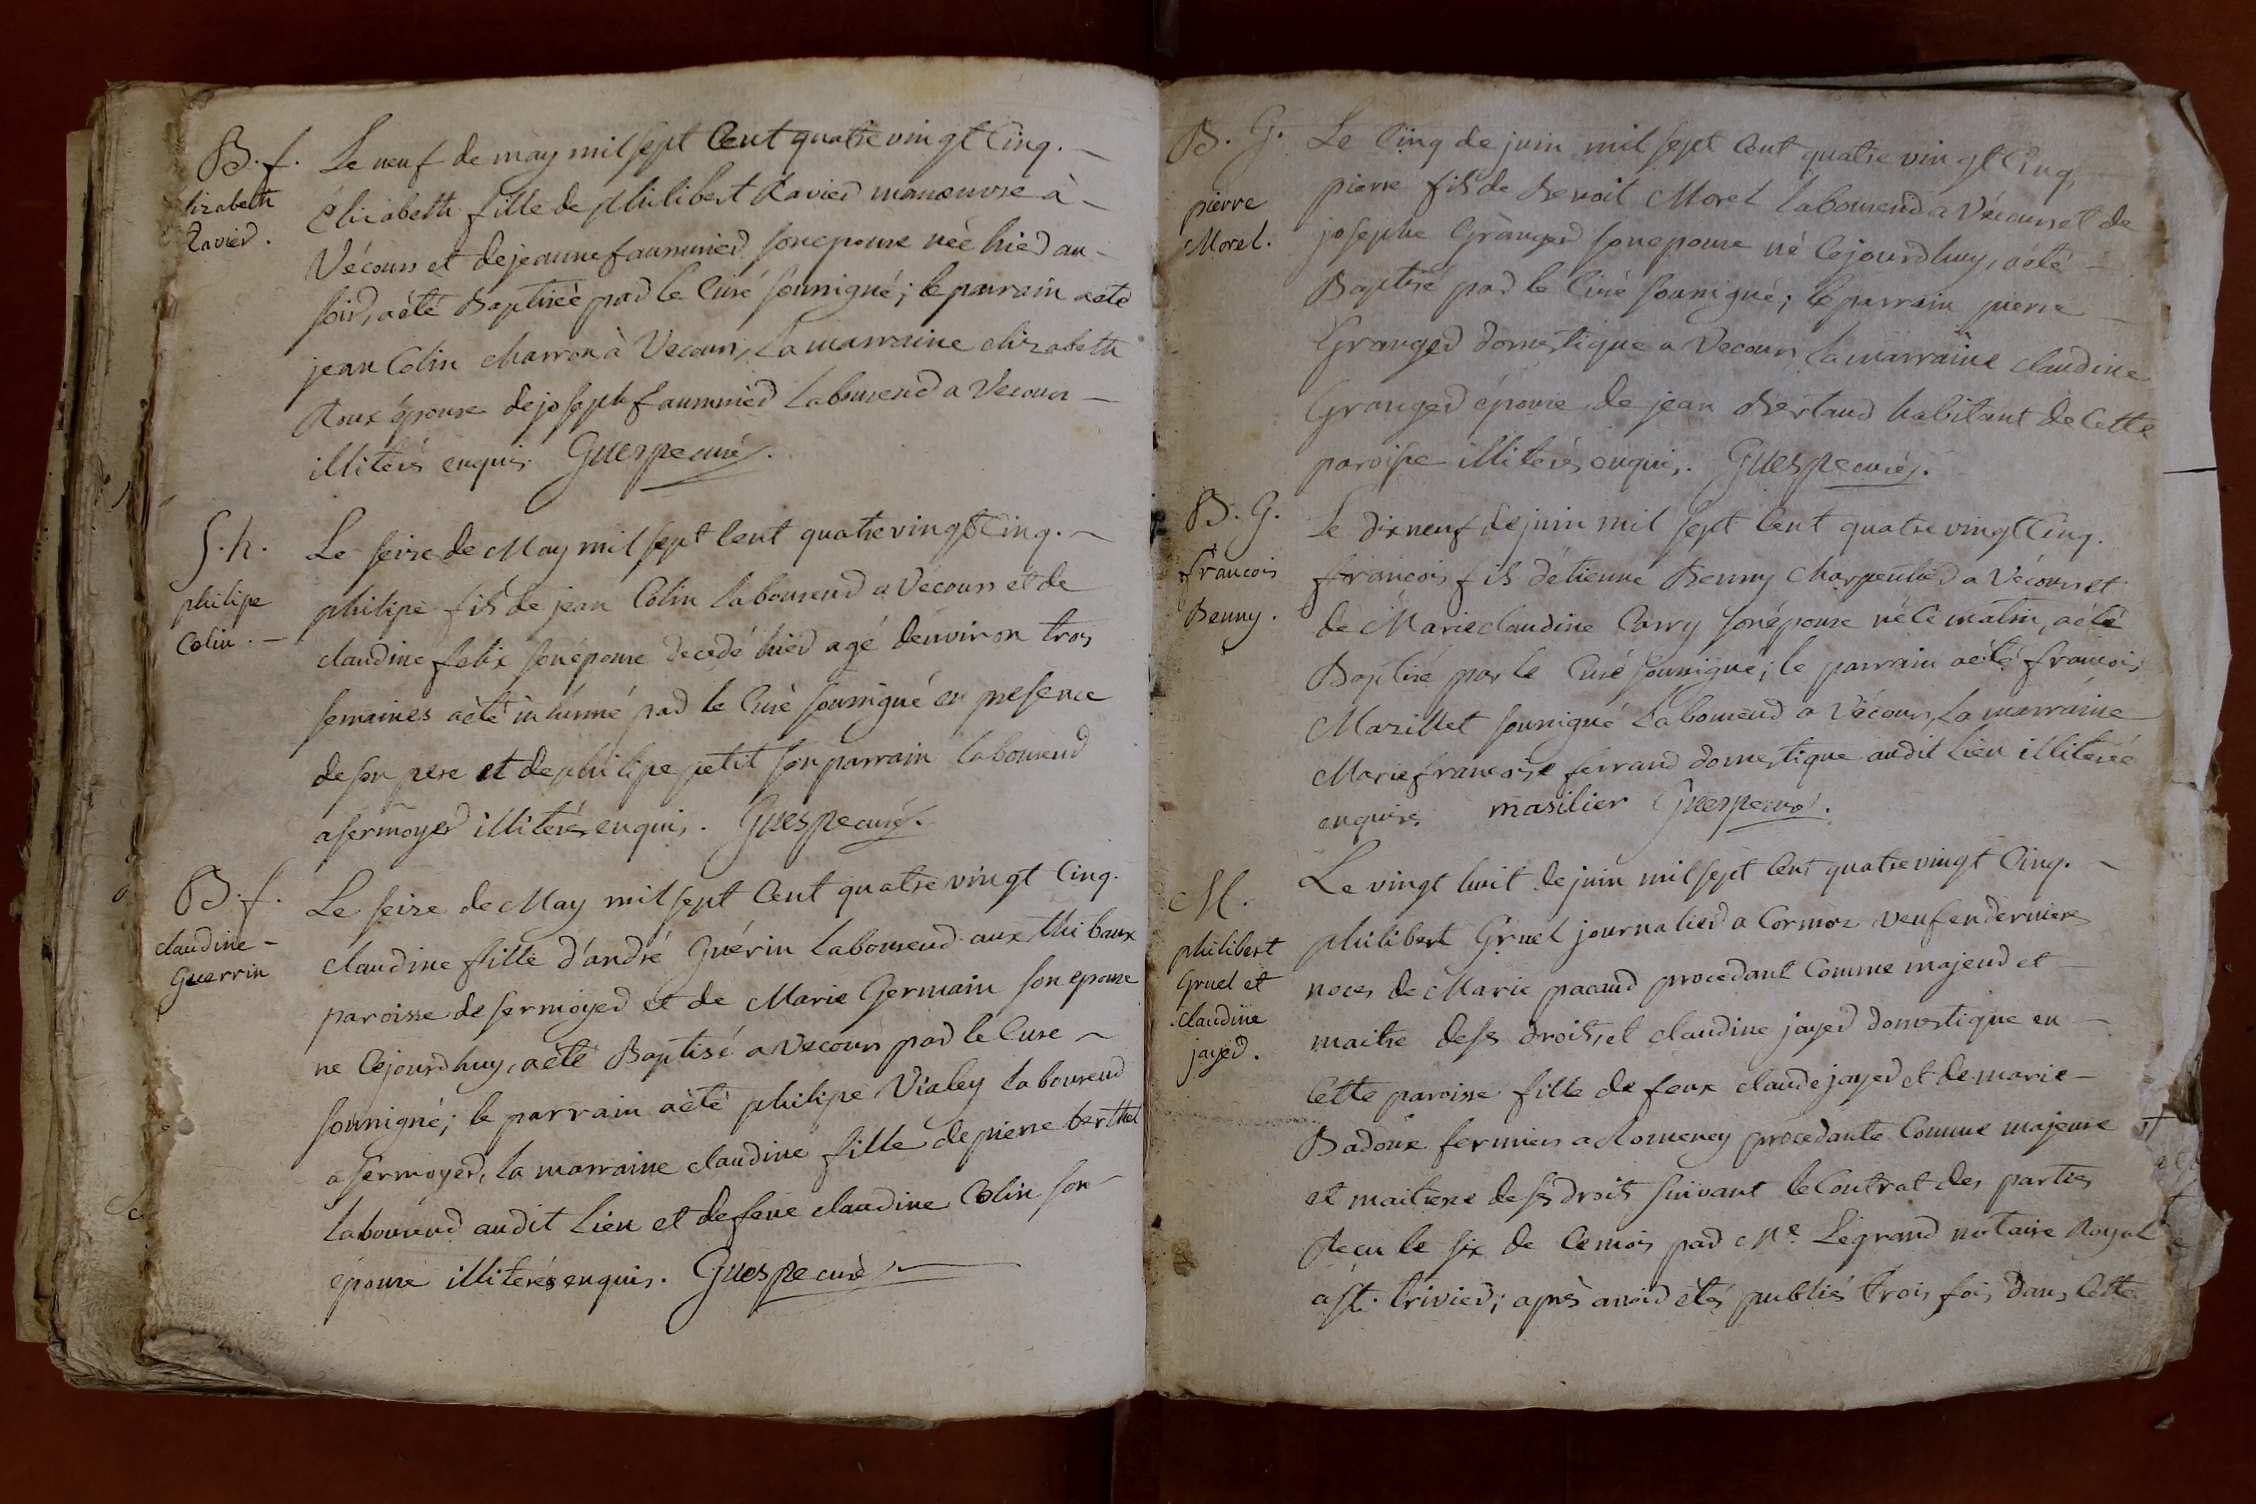 B. f.
lizabeth
Ravier.
Le neuf de may mil sept Cent quatre vingt Cinq. —
Elizabeth fille de philibert Ravier manœuvre à —
Vécours et de jeanne faussurier son epouse née hier au —
soir, a été Baptisée par le Curé soussigné; le parrain a été
jean Colin charron à Vecours, La marraine elizabeth
Roux épouse de joseph Laboureur a Vecours —
illiterés enquis. Guespe curé.
S. h.
philipe
Colin. —
Le seize de May mil sept Cent quatre vingt Cinq. —
philipe fils de jean Colin laboureur a Vécours et de
claudine felix son épouse decedé hier agé d'environ trois
semaines a été inhumé par le Curé soussigné en presence
de son pere et de philipe petit son parrain laboureur
a sermoyer illiterés enquis. Guespe curé.
B. f.
claudine —
Guerrin
Le seize de May mil sept Cent quatre vingt Cinq.
claudine fille d'andré Guérin laboureur aux thibaux
paroisse de sermoyer et de Marie Germain son epouse
ne Cejourdhuy, a été Baptisé a Vecours par le Cure —
soussigné; le parrain a été philipe Vialey laboureur
a sermoyer, la marraine claudine fille de pierre berthet
laboureur audit Lieu et de feue claudine Colin son —
épouse illiterés enquis. Guespe curé
B. G.
pierre
Morel.
Le Cinq de juin mil sept Cent quatre vingt Cinq,
pierre fils de Benoit Morel laboureur a Vécours et de
josephe Granger son epouse né Cejourdhuy, a été —
Baptisé par le Curé soussigné; le parrain pierre —
Granger domestique a Vecours, la marraine claudine
Granger épouse de jean Bertaud habitant de Cette
paroisse illiterés enquis. Guespe curé.
B. G.
francois
Benny.
Le dix neuf de juin mil sept Cent quatre vingt Cinq.
francois fils d'étienne Benny Charpentier a Vécours et
de Marie claudine Carry son épouse né Ce matin, a été
Baptisé par le Curé soussigné; le parrain a été francois
Mazillet soussigné Laboureur a Vécours, La marraine
Marie francoise ferrand domestique audit Lieu illiterée
enquise masilier Guespe curé.
M.
philibert
Gruel et
claudine
jayer.
Le vingt huit de juin mil sept Cent quatre vingt Cinq. —
philibert Gruel journalier a Cormoz veuf en dernieres
noces de Marie pacaud procedant Comme majeur et —
maitre de ses droits, et claudine jayer domestique en —
Cette paroisse fille de feux claude jayer et de marie —
Badoux fermiers a Romenay procedante Comme majeure
et maitresse de ses droits suivant le Contrat des parties
Recu le six de Ce mois par Me. Legrand notaire Royal
a St. trivier; après avoir étés publiés trois fois dans Cette